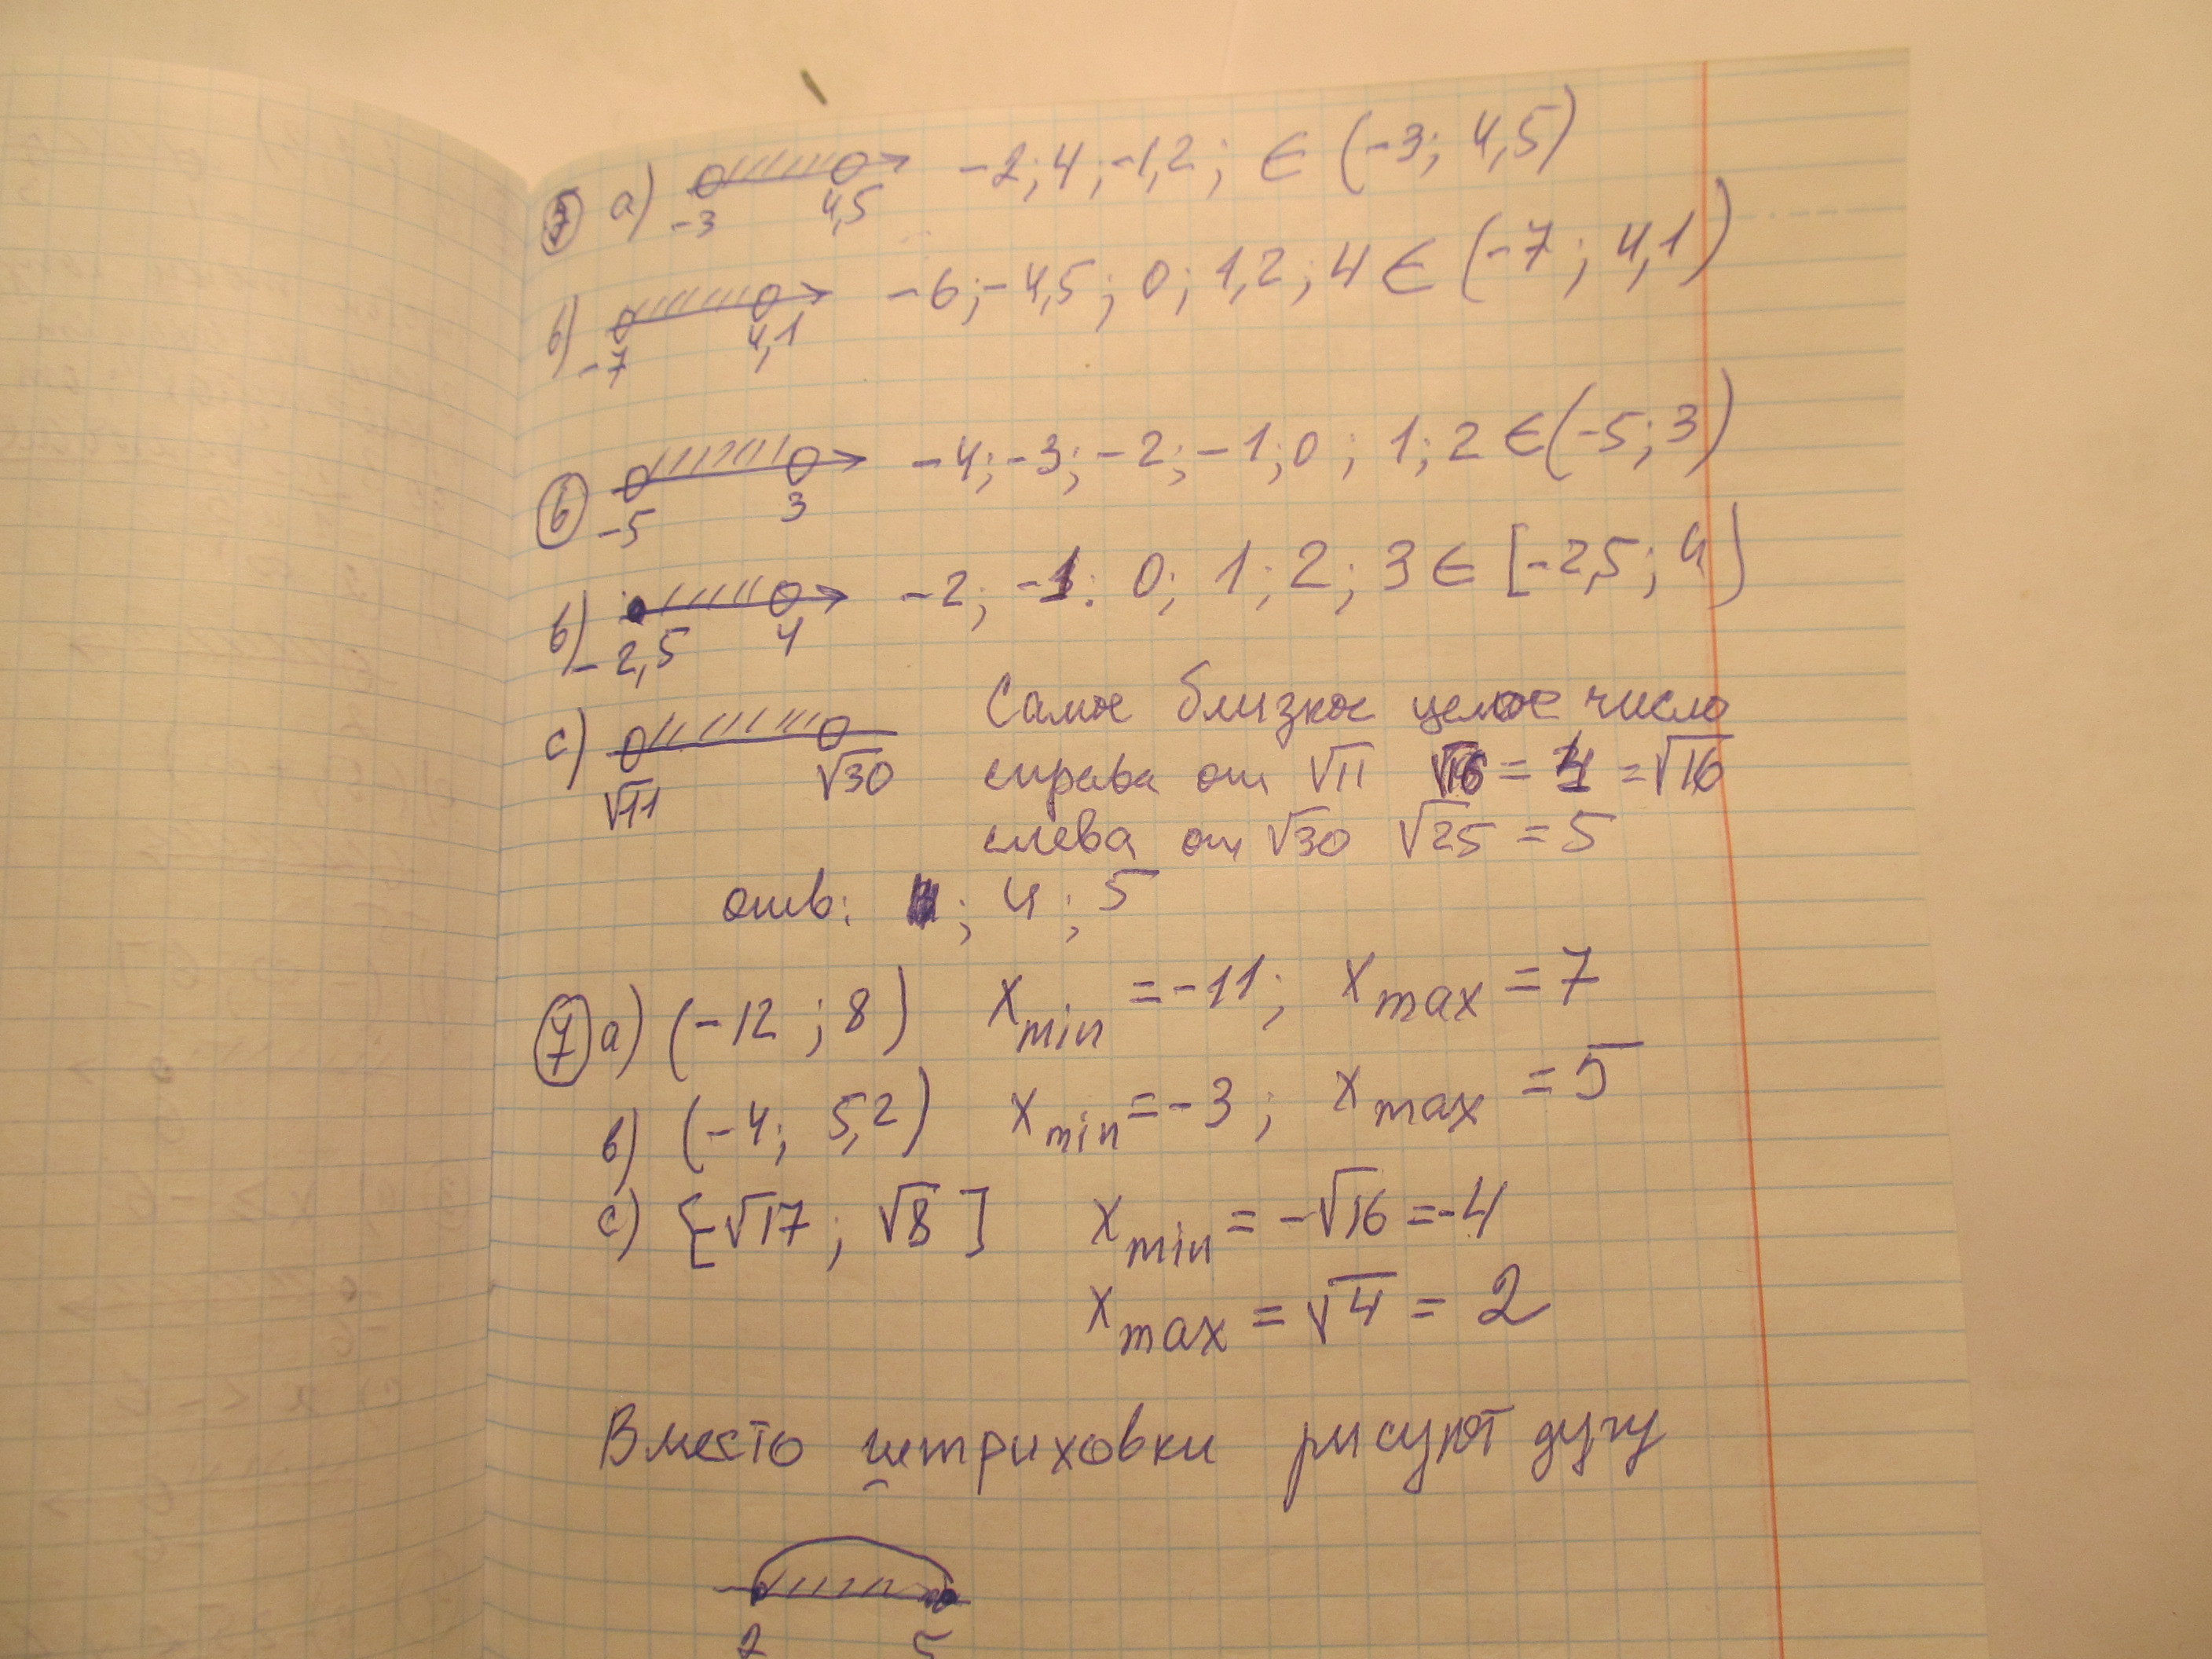 5 a) -3 4,5 -2; 4; -1,2; ∈ (-3; 4,5)
b) -7 4,1 -6; -4,5; 0; 1,2; 4 ∈ (-7; 4,1)
6 -5 3 -4; -3; -2; -1; 0; 1; 2 ∈ (-5; 3)
b) -2,5 4 -2; -1; 0; 1; 2; 3 ∈ [-2,5; 4)
c) √11 √30 Самое близкое целое число
справа от √11 √16 = 4 = √16
слева от √30 √25 = 5
отв: ; 4; 5
7 a) (-12; 8) x min = -11; x max = 7
b) (-4; 5,2) x min = -3; x max = 5
c) [-√17; √8] x min = -√16 = -4
x max = √4 = 2
Вместо штриховки рисуют дугу
2 5